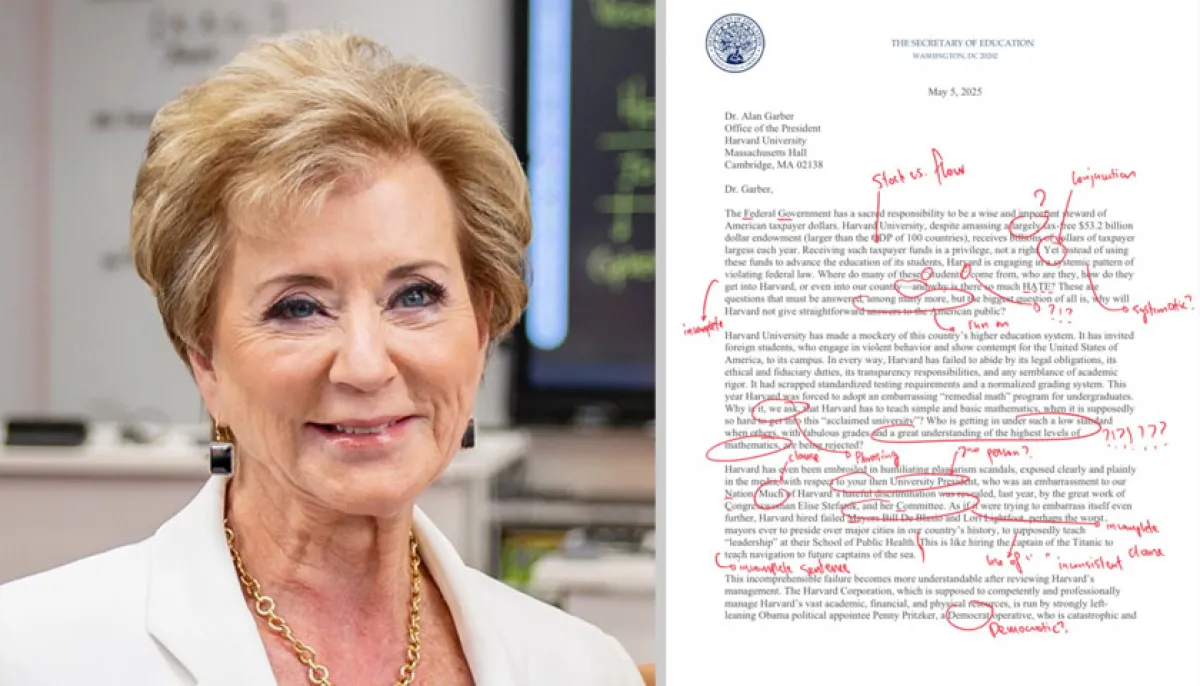 THE SECRETARY OF EDUCATION
WASHINGTON, DC 20202
May 5, 2025
Dr. Alan Garber
Office of the President
Harvard University
Massachusetts Hall
Cambridge, MA 02138
Dr. Garber,
Stock vs. flow
?
Conjunction
The Federal Government has a sacred responsibility to be a wise and important steward of
American taxpayer dollars. Harvard University, despite amassing a largely tax-free $53.2 billion
dollar endowment (larger than the GDP of 100 countries), receives billions of dollars of taxpayer
largess each year. Receiving such taxpayer funds is a privilege, not a right. Yet instead of using
these funds to advance the education of its students, Harvard is engaging in a systemic pattern of
violating federal law. Where do many of these students come from, who are they, how do they
get into Harvard, or even into our country—and why is there so much HATE? These are
questions that must be answered, among many more, but the biggest question of all is, why will
Harvard not give straightforward answers to the American public?
incomplete
run on
?!?
systematic?
Harvard University has made a mockery of this country's higher education system. It has invited
foreign students, who engage in violent behavior and show contempt for the United States of
America, to its campus. In every way, Harvard has failed to abide by its legal obligations, its
ethical and fiduciary duties, its transparency responsibilities, and any semblance of academic
rigor. It had scrapped standardized testing requirements and a normalized grading system. This
year Harvard was forced to adopt an embarrassing "remedial math" program for undergraduates.
Why is it, we ask, that Harvard has to teach simple and basic mathematics, when it is supposedly
so hard to get into this "acclaimed university"? Who is getting in under such a low standard
when others, with fabulous grades and a great understanding of the highest levels of
mathematics, are being rejected?
clause
Phrasing
person?
Harvard has even been embroiled in humiliating plagiarism scandals, exposed clearly and plainly
in the media, with respect to your then University President, who was an embarrassment to our
Nation. Much of Harvard's hateful discrimination was revealed, last year, by the great work of
Congresswoman Elise Stefanik, and her Committee. As if it were trying to embarrass itself even
further, Harvard hired failed Mayors Bill De Blasio and Lori Lightfoot, perhaps the worst
mayors ever to preside over major cities in our country's history, to supposedly teach
"leadership" at their School of Public Health. This is like hiring the captain of the Titanic to
teach navigation to future captains of the sea.
incomplete
incomplete sentence
use of " " inconsistent clause
This incomprehensible failure becomes more understandable after reviewing Harvard's
management. The Harvard Corporation, which is supposed to competently and professionally
manage Harvard's vast academic, financial, and physical resources, is run by strongly left-
leaning Obama political appointee Penny Pritzker, a Democrat operative, who is catastrophic and
Democratic?